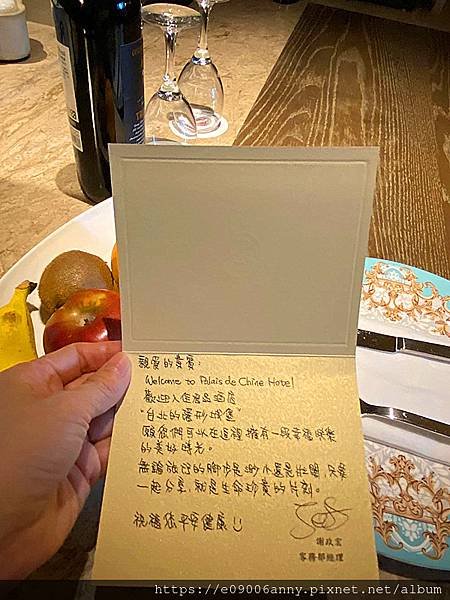 親愛的貴賓：
Welcome to Palais de Chine Hotel
歡迎入住君品酒店
"台北的隱形城堡"
願你們可以在這裡擁有一段幸福歡樂
的美好時光。
無論旅行的腳步是渺小還是壯闊，只要
一起分享，就是生命珍貴的片刻。
祝福您平安健康
謝政宏
客務部經理
https://e09006anny.pixnet.net/album